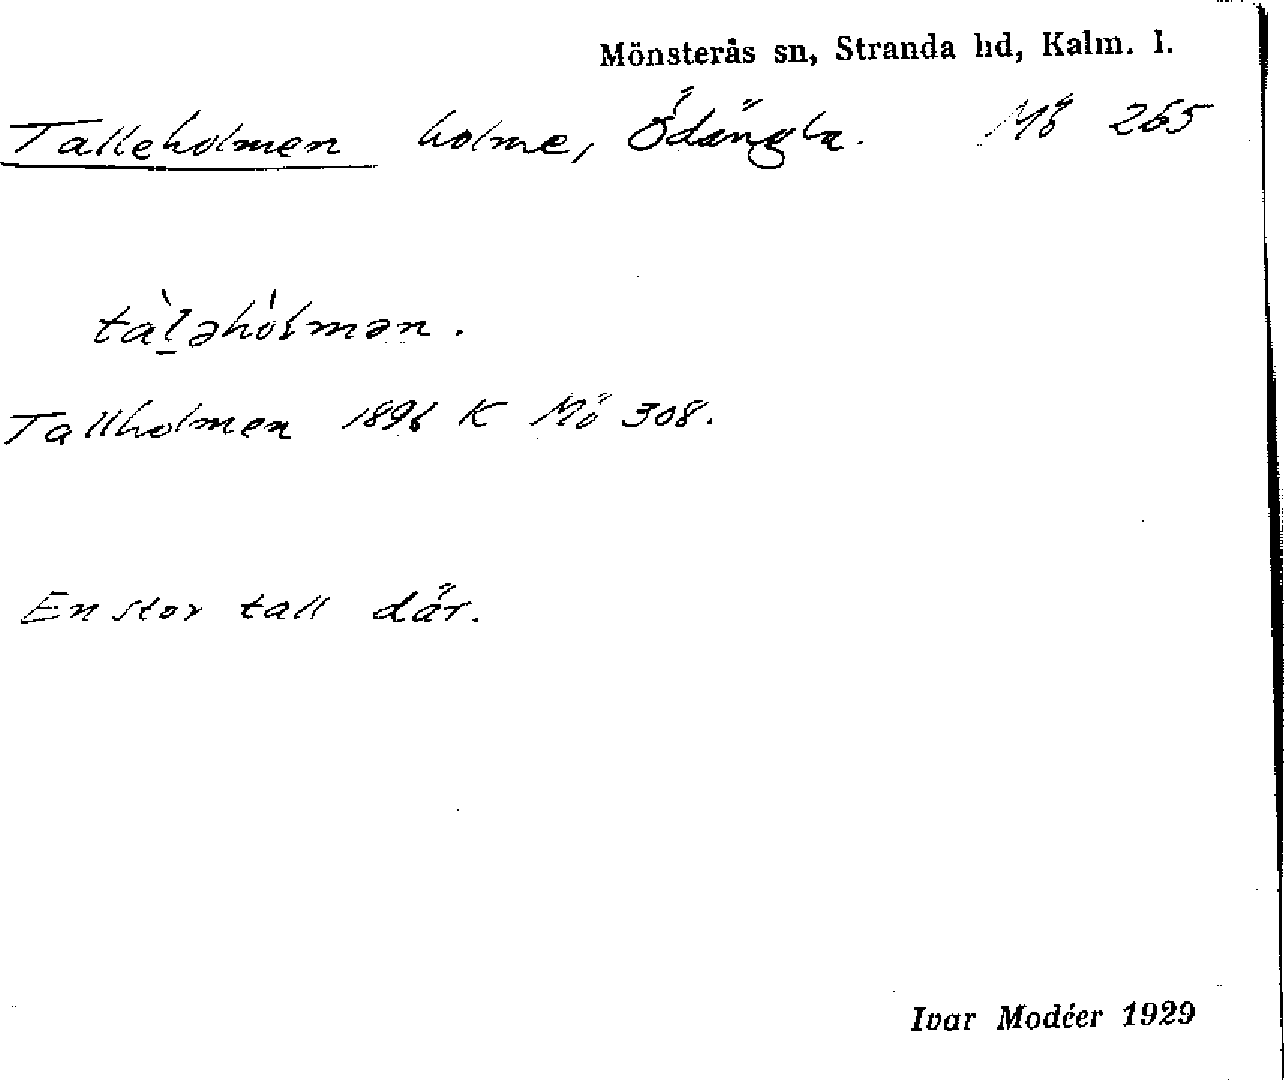 Mönsterås sn, Stranda hd, Kalm. l.
Talleholmen holme, Ödängla. Mö 265
tàl̠əhòlmən.
Tallholmen 1896 K Mö 308.
En stor tall där.
Ivar Modéer 1929